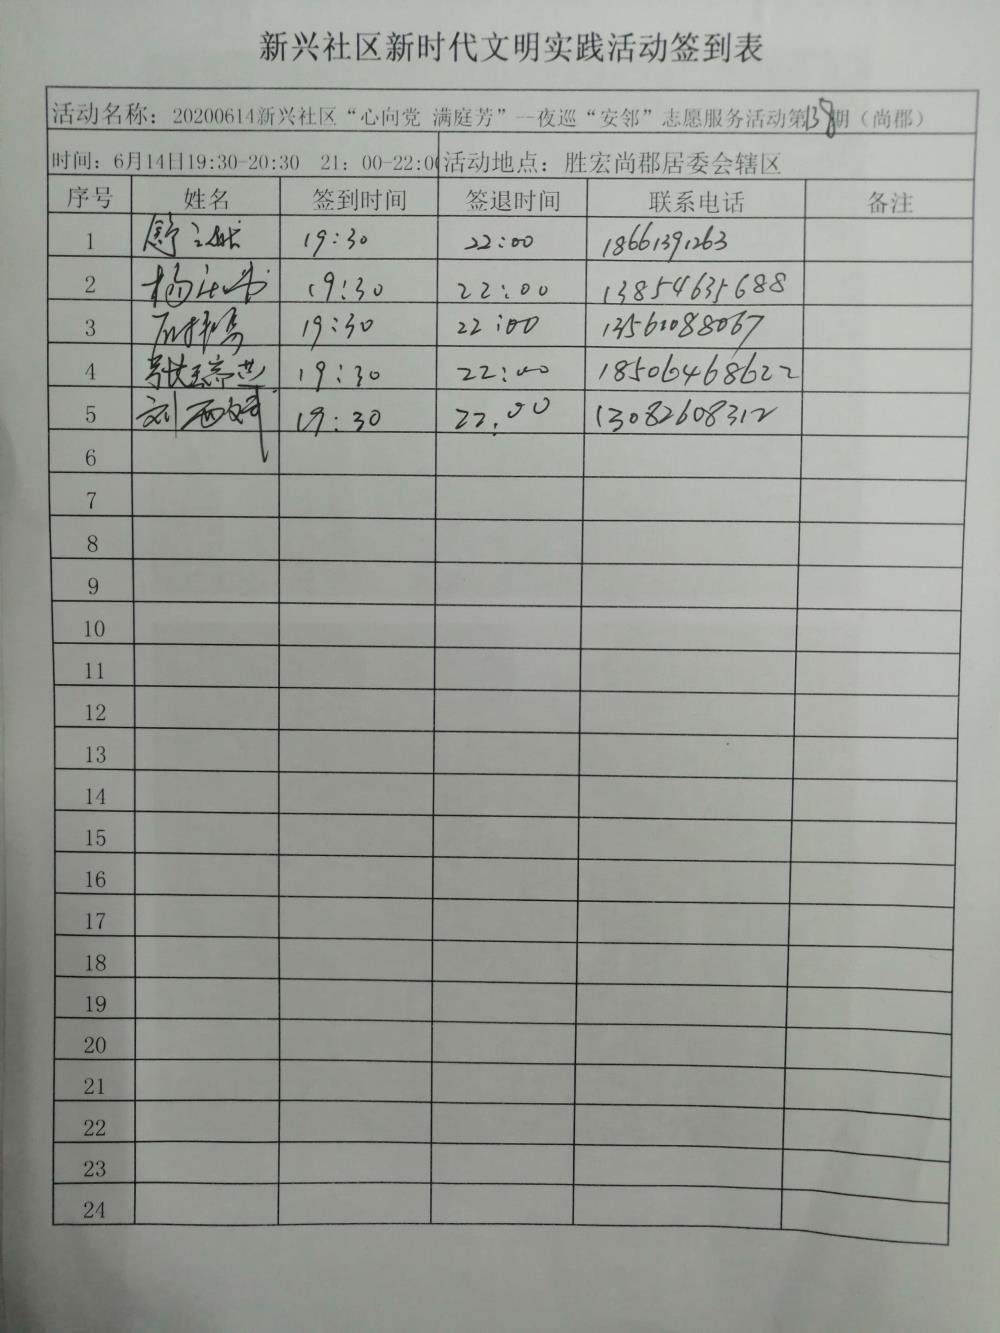 新兴社区新时代文明实践活动签到表
活动名称：20200614新兴社区“心向党 满庭芳”--夜巡“安邻”志愿服务活动第138期（尚郡）
时间：6月14日19:30-20:30 21：00-22:00 活动地点：胜宏尚郡居委会辖区
序号 姓名 签到时间 签退时间 联系电话 备注
1 19:30 22:00 18661391263
2 19:30 22:00 13854635688
3 19:30 22:00 13561088067
4 19:30 22:00 18506468622
5 刘 19:30 22:00 13082608312
6
7
8
9
10
11
12
13
14
15
16
17
18
19
20
21
22
23
24